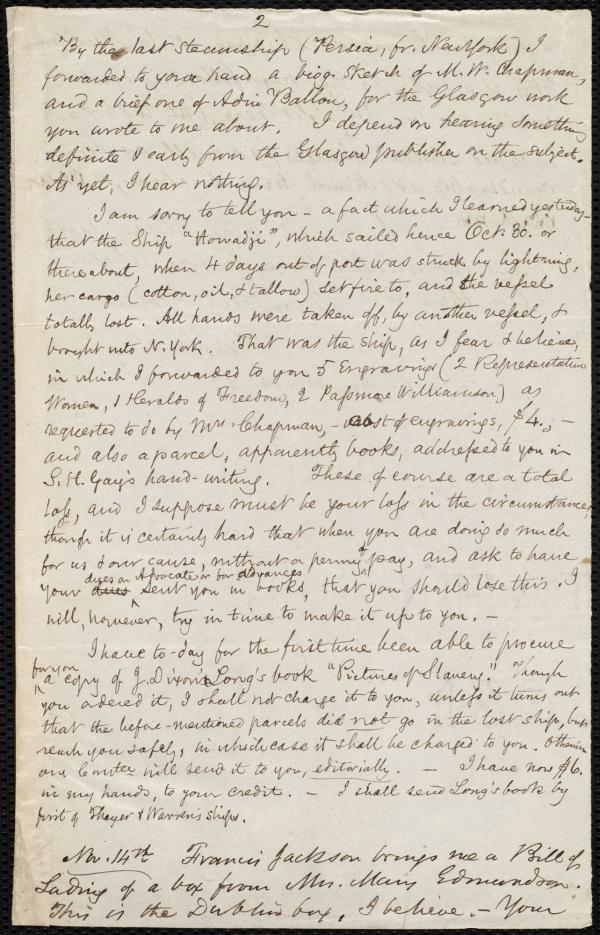 2
By the last steamship (Persia, fr. New York) I
forwarded to your hand a biog. sketch of M. W. Chapman,
and a brief one of Adin Ballou, for the Glasgow work
you wrote to me about. I depend on hearing something
definite & early from the Glasgow publisher on the subject.
As yet, I hear nothing.
I am sorry to tell you - a fact which I learned yesterday -
that the Ship "Howadji", which sailed hence Oct. 30. or
thereabout, when 4 days out of port was struck by lightning,
her cargo (cotton, oil, & tallow) set fire to, and the vessel
totally lost. All hands were taken off, by another vessel, &
brought into N. York. That was the ship, as I fear & believe,
in which I forwarded to you 5 Engravings (2 Representative
Women, 1 Heralds of Freedom, 2 Passmore Williamson) as
requested to do by Mrs. Chapman, - cost of engravings, $4., -
and also a parcel, apparently books, addressed to you in
S. H. Gay's hand-writing. These of course are a total
loss, and I suppose must be your loss in the circumstances,
though it is certainly hard that when you are doing so much
for us & our cause, without a penny of pay, and ask to have
your dues on Advocate or for advances sent you in books, that you should lose this. I
will, however, try in time to make it up to you. -
I have to-day for the first time been able to procure
for you a copy of J. Dixon Long's book "Pictures of Slavery." Though
you ordered it, I shall not charge it to you, unless it turns out
that the before-mentioned parcels did not go in the lost ship, but
reach you safely, in which case it shall be charged to you. Otherwise
our Comtee will send it to you, editorially. - I have now $6.
in my hands, to your credit. - I shall send Long's book by
first of Thayer & Warren's ships.
Nov. 14th. Francis Jackson brings me a Bill of
Lading of a box from Mrs. Mary Edmundson.
This is the Dublin box, I believe. - Your